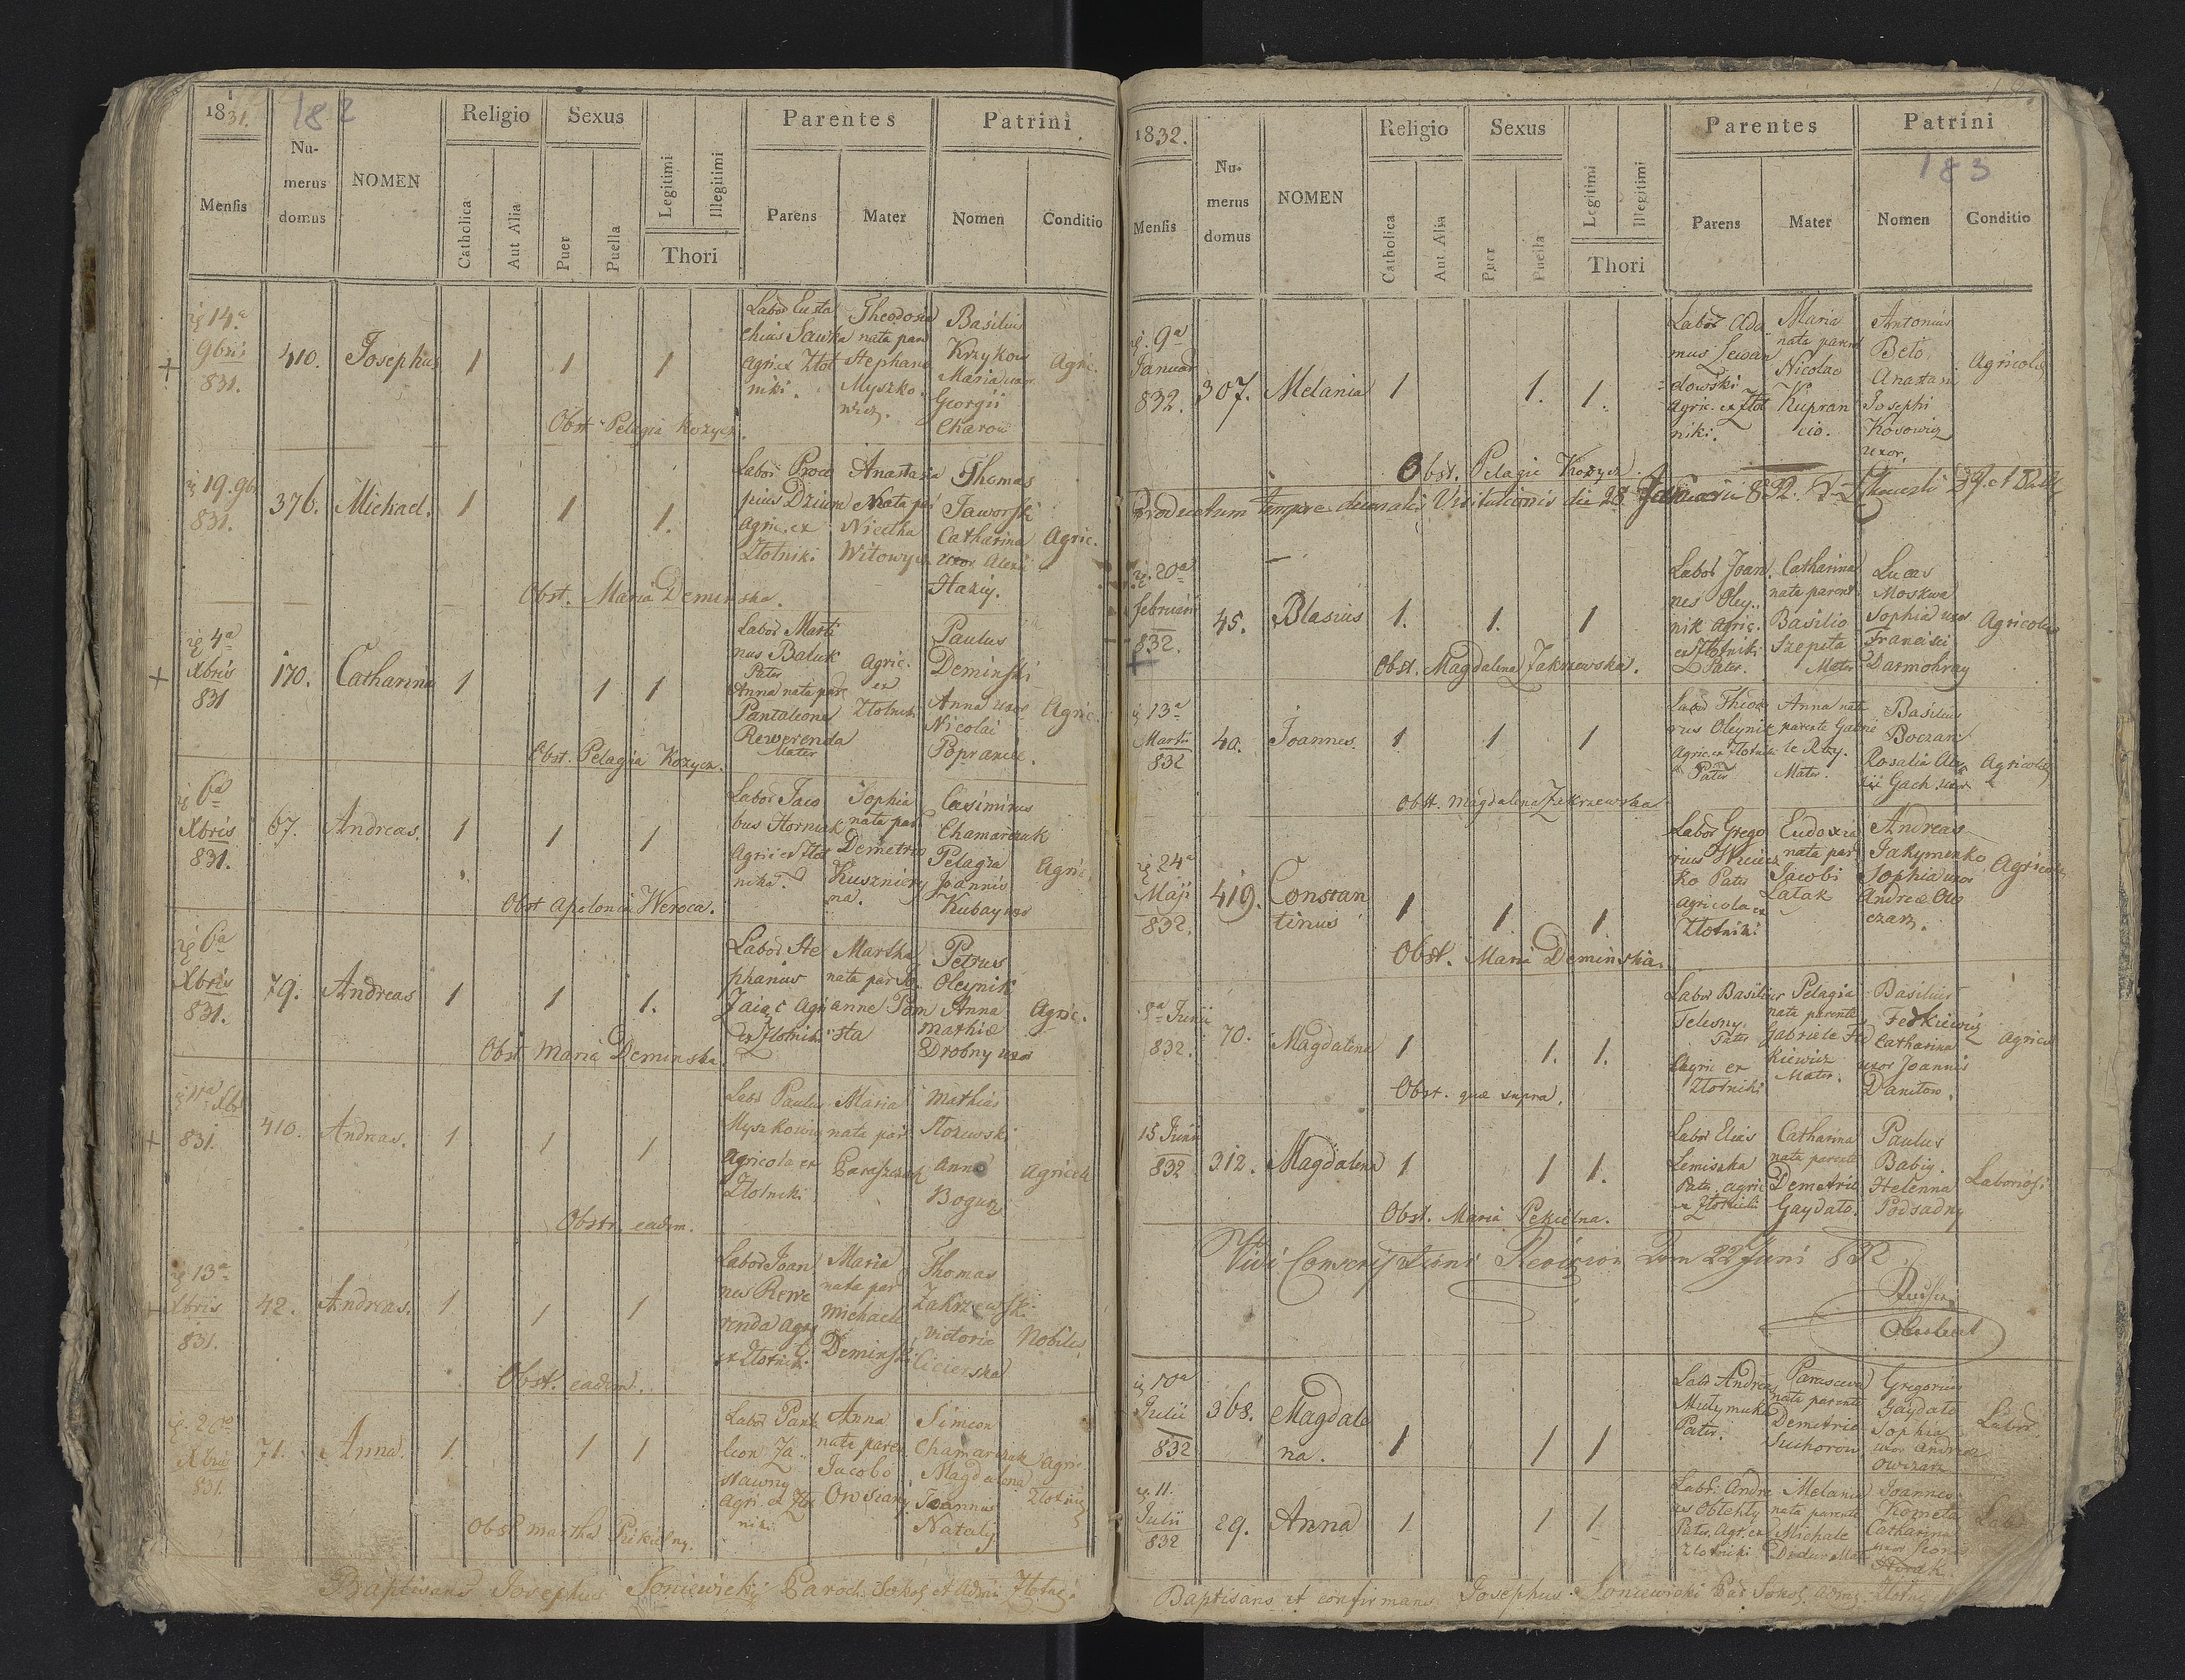 1831.
182
Mensis
Numerus domus
NOMEN
Religio
Catholica
Aut Alia
Sexus
Puer
Puella
Legitimi
Illegitimi
Thori
Parentes
Parens
Mater
Patrini
Nomen
Conditio
14a
9bris
831.
410.
Josephus
1 1 1
Labor Eusta
chius Sawka
Agric. ex Złot
niki.
Theodosia
nata par
Stephano
Myszko
wicz.
Basilius
Krzykow
Maria uxor
Georgii
Charow
Agric.
Obst. Pelagia Kozycz.
19. 9br
831.
376.
Michael.
1 1 1.
Labor. Proco
pius Dziura
Agric. ex
Złotniki
Anastasia
Nata par
Nicetha
Witowycz
Thomas
Jaworski
Catharina
uxor Alexii
Haziy.
Agric.
Obst. Maria Deminska.
4a
Xbris
831
170.
Catharina
1 1 1
Labor Marti
nus Baluk
Pater
Anna nata par
Pantaleone
Rewerenda
Mater
Agric.
ex
Złotniki
Paulus
Deminski
Anna uxor
Nicolai
Agric.
Obst. Pelagia Kozycz.
6a
Xbris
831.
67.
Andreas.
1 1 1
Labor Jaco
bus Horniak
Agric ex Złot
niki.
Sophia
nata par.
Demetrio
Kuszniery
na.
Casimirus
Chamarczuk
Pelagia
Joannis
Kubay uxor
Agric.
Obst Apolonia Weroca.
6a
Xbris
831.
79.
Andreas
1 1 1.
Labor Ste
phanus
Zaiąc Agri
ex Złotniki
Martha
nata par Jo
anne Pom
sta
Petrus
Oleynik
Anna
Mathiæ
Drobny uxor
Agric.
Obst Maria Deminska.
11a Xbr
831.
410.
Andreas.
1 1 1
Labor Paulus
Myszkowicz
Agricola ex
Złotniki
Maria
nata par
Mathias
Anna
Bogusz
Agricola
Obstr. eadem.
13a
Xbris
831.
42.
Andreas.
1 1 1
Labor Joan
nes Rewe
renda Agri
ex Złotniki
Maria
nata par
Michaele
Deminski
Thomas
Zakrzewski
Victoria
Cicierska
Nobiles
Obst. eadem.
20a
Xbris
831.
71.
Anna.
1. 1 1
Labor Panta
leon Za
sławny
Agri ex Zło
niki
Anna
nata paren
Jacobo
Owsiany
Simeon
Chamarczuk
Magdalena
Joannis
Nataliy
Agri.
Złotniki
Obst Martha Pikielny.
Baptisans Josephus Soniewicki Paroch. Sokol et Admi Złotn:
1832.
183
Mensis
Numerus domus
NOMEN
Religio
Catholica
Aut Alia
Sexus
Puer
Puella
Legitimi
Illegitimi
Thori
Parentes
Parens
Mater
Patrini
Nomen
Conditio
9a
Januar
832.
307.
Melania
1 1. 1.
Labor Ada
mus Lewan
dowski
Agric. ex Złot
niki.
Maria
nata parent
Nicolao
Kupran
cio.
Antonius
Beto
Anastasia
Josephi
Kosowicz
uxor.
Agricolæ
Obst. Pelagie Kozycz.
Productum tempore decanalis Visitationis die 28 Januarii 832.
20a
februarii
832.
45.
Blasius
1. 1. 1
Labor Joan
nes Oley
nik Agric.
ex Złotniki
Pater.
Catharina
nata parent
Basilio
Szepta
Mater
Lucas
Moskwa
Sophia uxor
Francisci
Darmohray
Agricolæ
Obst. Magdalena Zakrzewska.
13a
Martii
832
40.
Joannes.
1 1 1
Labor Theodo
rus Oleynik
Agric ex Złotniki
Pater
Anna nata
parente Gabrie
le Rzy.
Mater.
Basilius
Boczar
Rosalia Ale
xii Gach. uxor
Agricolæ
Obst. Magdalena Zakrzewska
24a
Maji
832.
419.
Constan
tinus
1 1. 1.
Labor Grego
rius
ko Pater
Agricola ex
Złotniki
Eudoxia
nata par
Jacobi
Łatak
Andreas
Jakymenko
Sophia uxor
Andreæ Ow
czarz.
Agricolæ
Obst. Maria Deminska.
Junii
832.
70.
Magdalena
1 1. 1.
Labor Basilius
Telesny.
Pater
Agric ex
Złotniki
Pelagia
nata parente
Gabriele Fed
kiewicz
Mater.
Basilius
Fedkiewicz
Catharina
uxor Joannis
Daniłow.
Agricolæ
Obst. quæ supra.
15 Junii
832
312.
Magdalena
1 1 1.
Labor Elias
Lemiszka
Pater Agric
ex Złotniki
Catharina
nata parente
Demetrio
Gaydało.
Paulus
Babiy.
Helenna
Podsadny
Laboriosi
Obst. Maria Pekielna.
Vidi Conscriptions Revision den 22 Juni 832
10a
Julii
832
368.
Magdale
na.
1 1 1
Labor Andreas
Pater.
Parasceva
nata parente
Demetrio
Suchorow
Gregorius
Gaydało
Sophia
uxor Andreæ
Owczarz
Labor.
11.
Julii
832
29.
Anna
1 1 1.
Labor. Andre
as
Pater. Agr. ex
Złotniki
Melania
nata parente
Michale
Mater
Joannes
Kometa
Catharina
uxor
Labor
Baptisans et confirmans Josephus Soniewicki Par Sokol. Admi Złotn